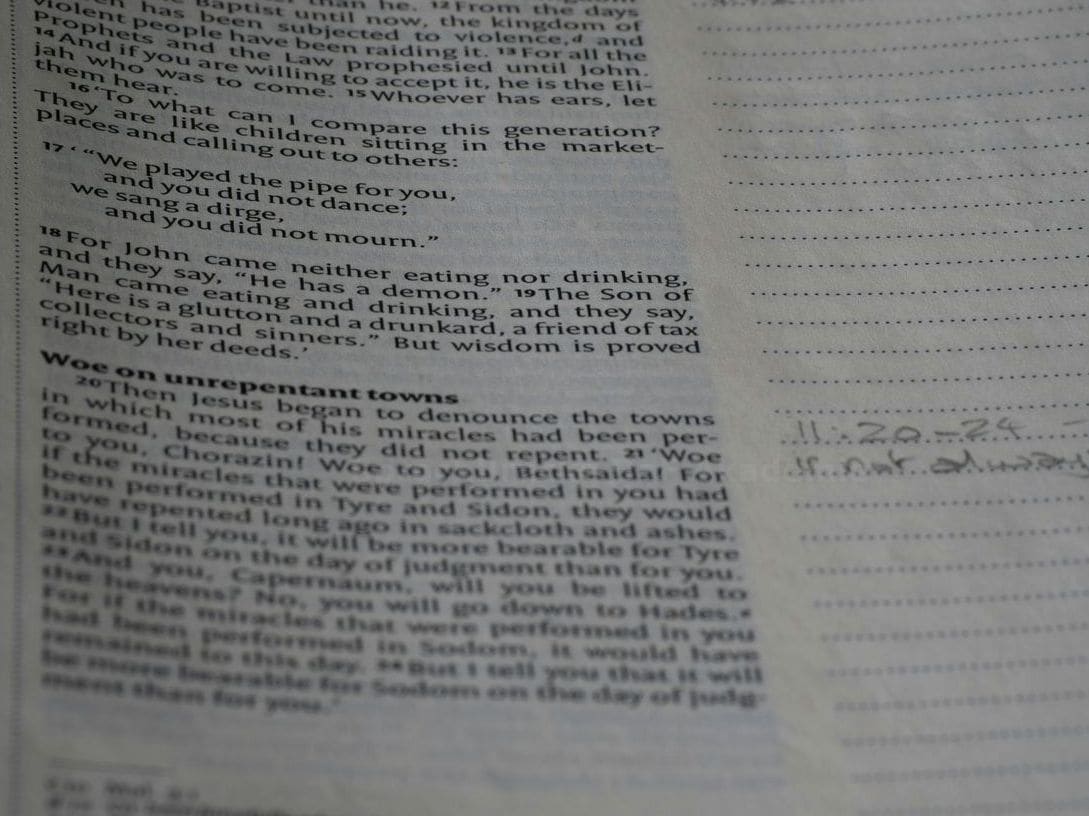 than he. 12 From the days
Baptist until now, the kingdom of
has been subjected to violence,d and
violent people have been raiding it. 13 For all the
Prophets and the Law prophesied until John.
14 And if you are willing to accept it, he is the Eli-
jah who was to come. 15 Whoever has ears, let
them hear.
16 ‘To what can I compare this generation?
They are like children sitting in the market-
places and calling out to others:
17 ‘ “We played the pipe for you,
and you did not dance;
we sang a dirge,
and you did not mourn.”
18 For John came neither eating nor drinking,
and they say, “He has a demon.” 19 The Son of
Man came eating and drinking, and they say,
“Here is a glutton and a drunkard, a friend of tax
collectors and sinners.” But wisdom is proved
right by her deeds.’
Woe on unrepentant towns
20 Then Jesus began to denounce the towns
in which most of his miracles had been per-
formed, because they did not repent. 21 ‘Woe
to you, Chorazin! Woe to you, Bethsaida! For
if the miracles that were performed in you had
been performed in Tyre and Sidon, they would
have repented long ago in sackcloth and ashes.
22 But I tell you, it will be more bearable for Tyre
and Sidon on the day of judgment than for you.
23 And you, Capernaum, will you be lifted to
the heavens? No, you will go down to Hades.e
For if the miracles that were performed in you
had been performed in Sodom, it would have
remained to this day. 24 But I tell you that it will
be more bearable for Sodom on the day of judg-
ment than for you.’
11:20-24 -